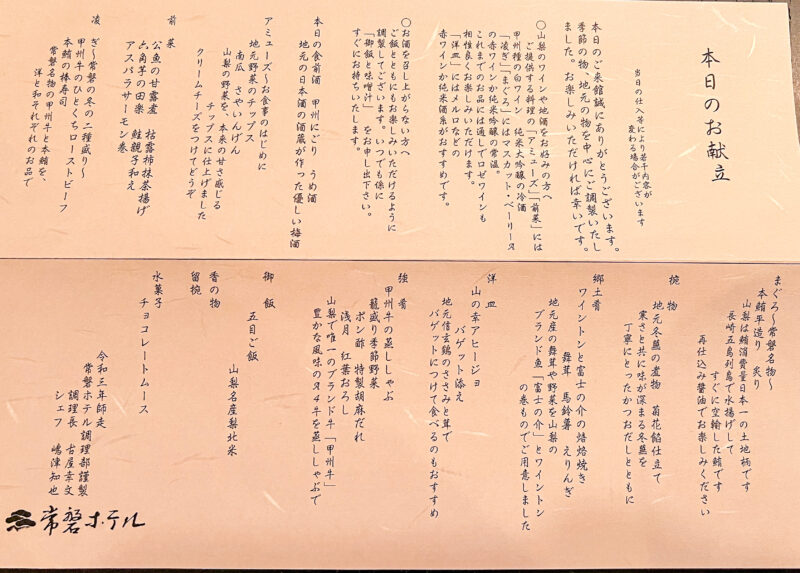 本日のお献立
当日の仕入等により若干内容が
変わる場合がございます
本日のご来館誠にありがとうございます。
季節の物、地元の物を中心にご調製いたし
ました。お楽しみいただければ幸いです。
○山梨のワインや地酒をお好みの方へ
ご提供する料理の「アミューズ」「前菜」には
甲州種の白ワイン 純米大吟醸の冷酒
「凌ぎ」「まぐろ」にはマスカット・ベーリーA
の赤ワインか純米吟醸の常温。
これまでのお品には通しでロゼワインも
相性良くお楽しみいただけます。
「洋皿」にはメルロなどの
赤ワインか純米酒系がおすすめです。
○お酒を召し上がらない方へ
ご飯とともにもお楽しみいただけるように
調製してございます。いつでも係に
「御飯と味噌汁」をお申し出下さい。
すぐにお持ちいたします。
本日の食前酒 甲州にごり うめ酒
地元の日本酒の酒蔵が作った優しい梅酒
アミューズ~お食事のはじめに
地元野菜のチップス
南瓜 さやいんげん
山梨の野菜を、本来の甘さ感じる
チップスに仕上げました
クリームチーズをつけてどうぞ
前菜
公魚の甘露煮 枯露柿抹茶揚げ
六角芋の田楽 鮭親子和え
アスパラサーモン巻
凌ぎ~常磐の冬の二種盛り~
甲州牛のひとくちローストビーフ
本鮪の棒寿司
常磐名物の甲州牛と本鮪を、
洋と和それぞれのお品で
まぐろ~常磐名物~
本鮪平造り 炙り
山梨は鮪消費量日本一の土地柄です
長崎五島列島で水揚げして
すぐに空輸した鮪です
再仕込み醤油でお楽しみください
椀物
地元冬蕪の煮物 菊花餡仕立て
寒さと共に味が深まる冬蕪を
丁寧にとったかつおだしとともに
郷土肴
ワイントンと富士の介の焙烙焼き
舞茸 馬鈴薯 えりんぎ
地元産の舞茸や野菜を山梨の
ブランド魚「富士の介」とワイントン
の巻ものでご用意しました
洋皿
山の幸アヒージョ
バゲット添え
地元信玄鶏のささみと茸で
バゲットにつけて食べるのもおすすめ
強肴
甲州牛の蒸ししゃぶ
籠盛り季節野菜
ポン酢 特製胡麻だれ
浅月 紅葉おろし
山梨で唯一のブランド牛「甲州牛」
豊かな風味のA4牛を蒸ししゃぶで
御飯
五目ご飯
山梨名産梨北米
香の物
留椀
水菓子
チョコレートムース
令和三年師走
常磐ホテル調理部謹製
調理長 古屋幸文
シェフ 嶋津知也
常磐ホテル